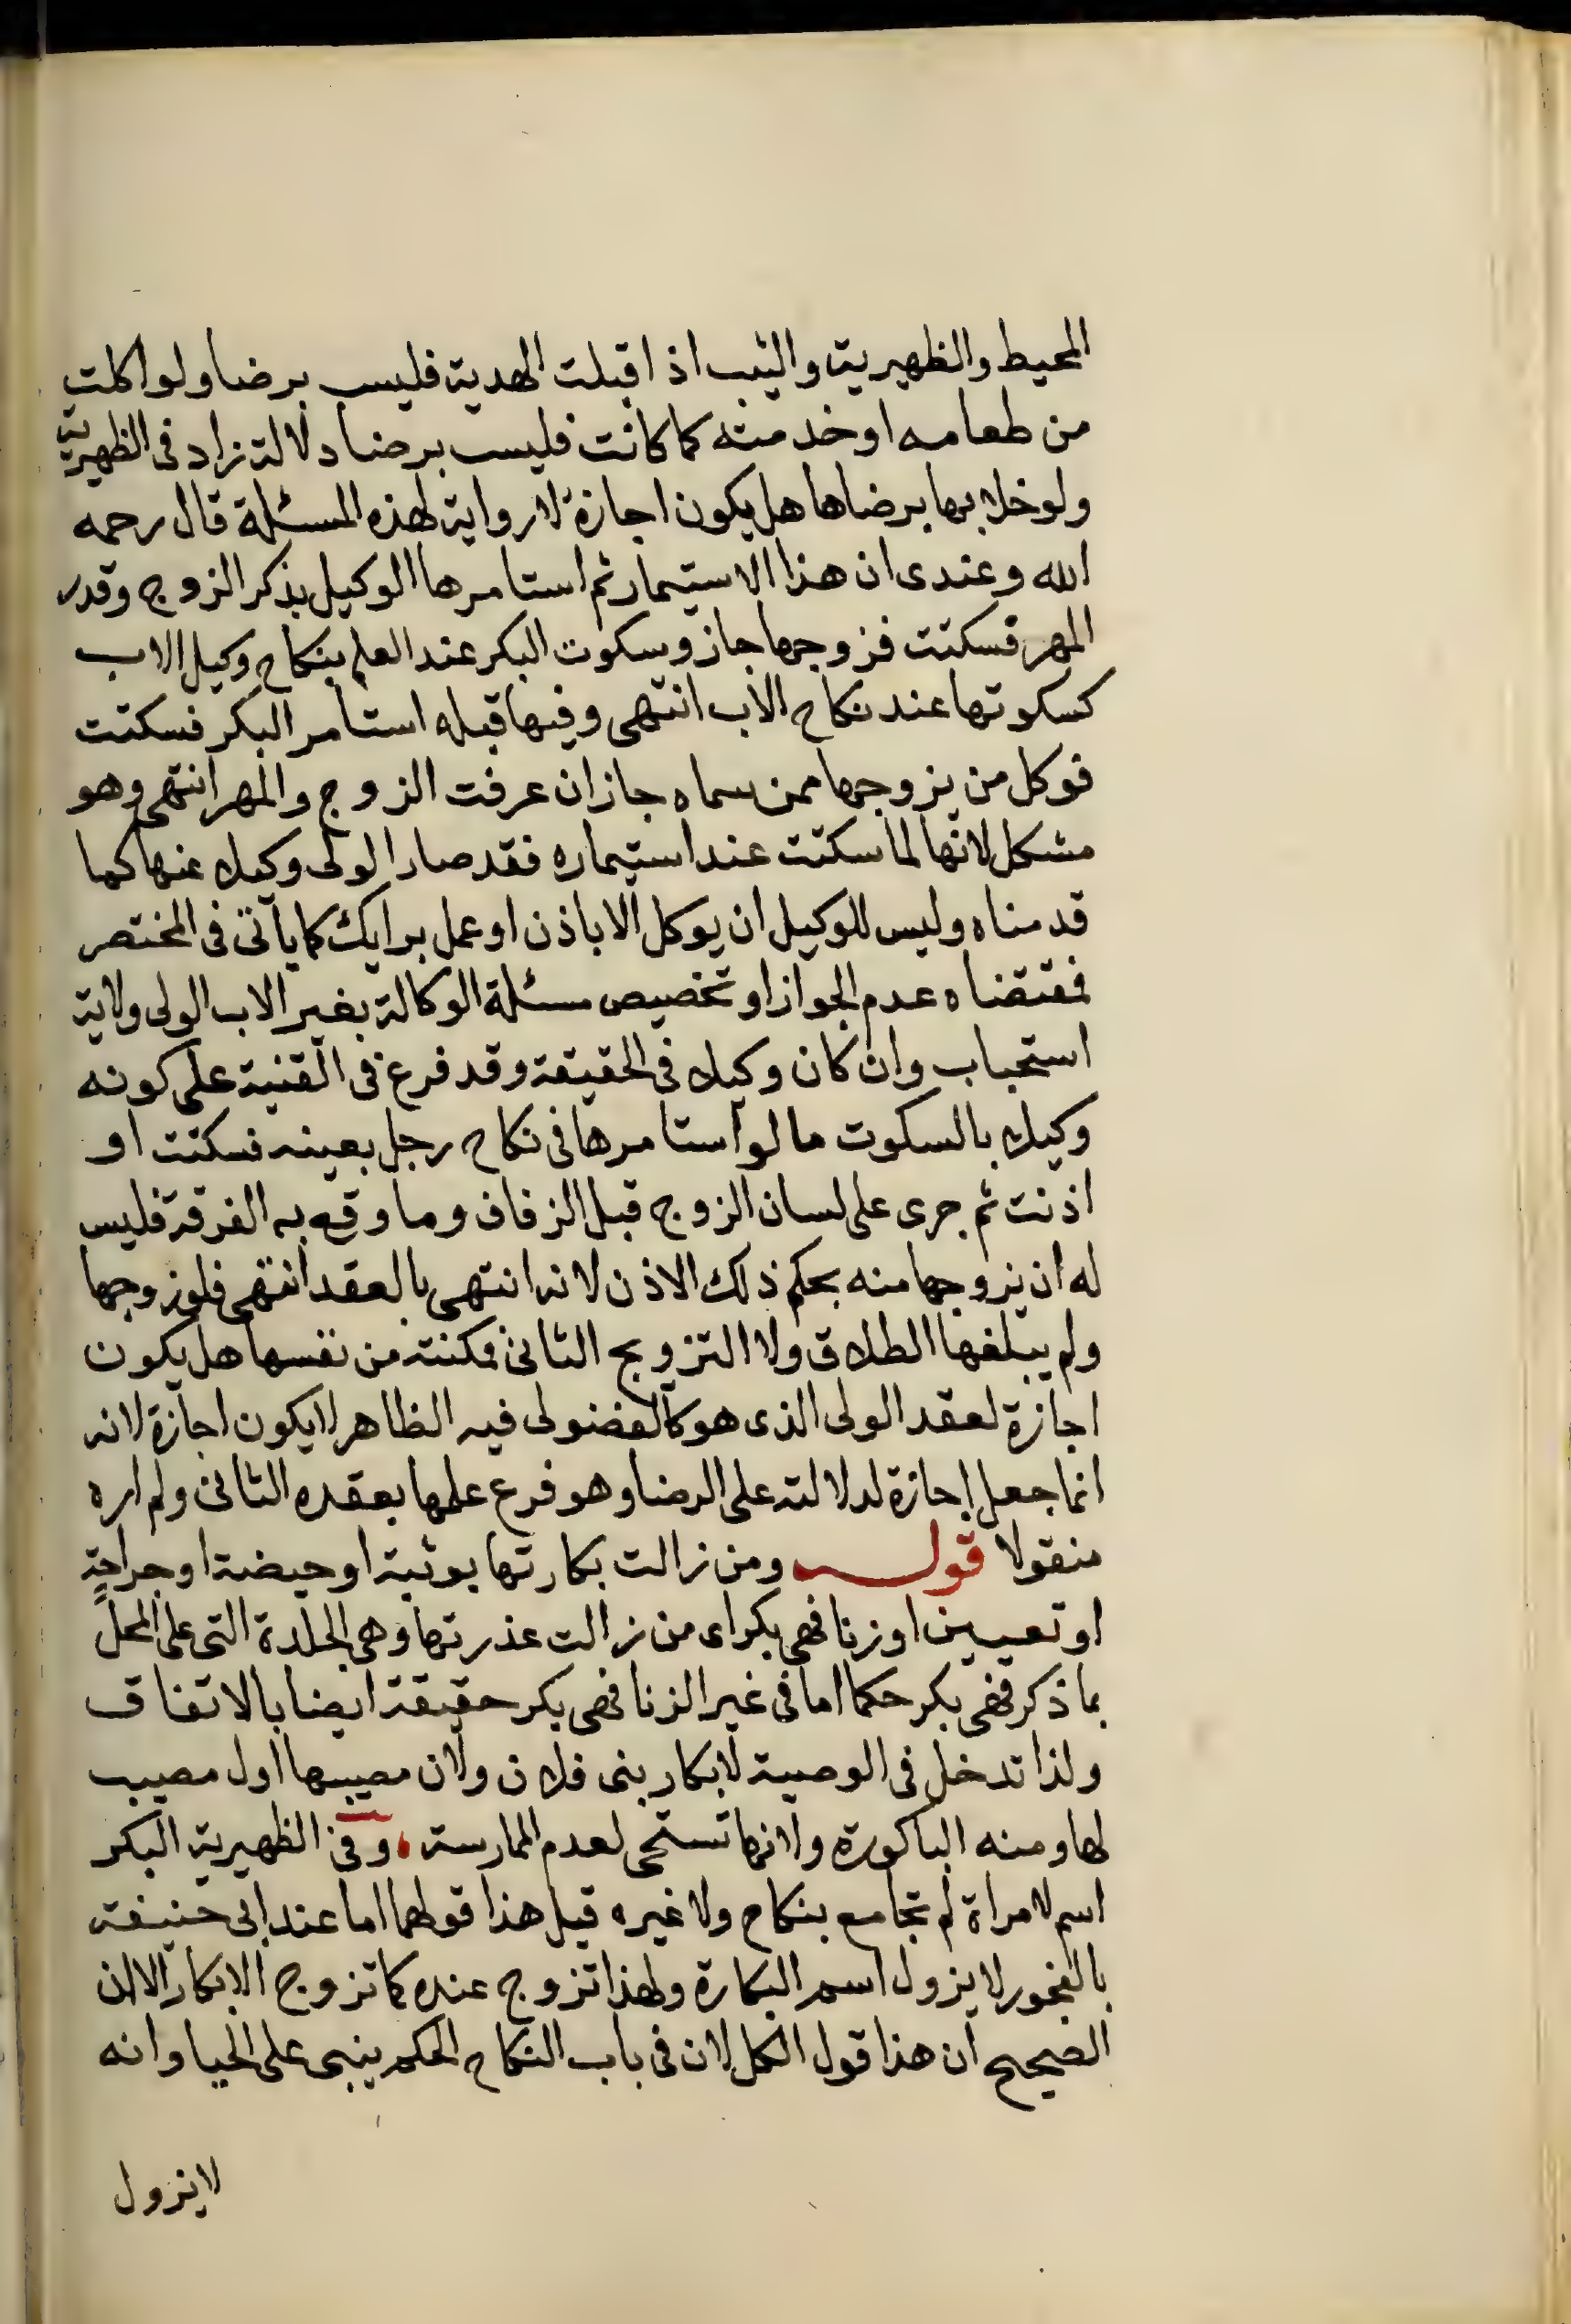 المحيط والظهيرية والثيب اذا قبلت الهدية فليس برضا ولو اكلت
من طعامه او خدمته كما كانت فليس برضا دلالة زاد فى الظهيرية
ولو خلا بها برضاها هل يكون اجازة لا رواية لهذه المسئلة قال رحمه
الله وعندى ان هذا الاستيمار ثم استامرها الوكيل بذكر الزوج وقدر
المهر فسكتت فزوجها جاز وسكوت البكر عند العلم بنكاح وكيل الاب
كسكوتها عند نكاح الاب انتهى وفيها قبله استامر البكر فسكتت
فوكل من يزوجها ممن سماه جاز ان عرفت الزوج والمهر انتهى وهو
مشكل لانها لما سكتت عند استيماره فقد صار الولى وكيلا عنها كما
قدمناه وليس للوكيل ان يوكل الا باذن او عمل برايك كما ياتى فى المختصر
فمقتضاه عدم الجواز او تخصيص مسئلة الوكالة بغير الاب الولى ولاية
استحباب وان كان وكيلا فى الحقيقة وقد فرع فى القنية على كونه
وكيلا بالسكوت ما لو استامرها فى نكاح رجل بعينه فسكتت او
اذنت ثم جرى على لسان الزوج قبل الزفاف وما وقع به الفرقة فليس
له ان يزوجها منه بحكم ذلك الاذن لانه انتهى بالعقد انتهى فلو زوجها
ولم يبلغها الطلاق ولا التزويج الثانى فمكنته من نفسها هل يكون
اجازة لعقد الولى الذى هو كالفضولى فيه الظاهر لا يكون اجازة لانه
انما جعل اجازة لدلالته على الرضا وهو فرع علمها بعقده الثانى ولم اره
منقولا قوله ومن زالت بكارتها بوثبة او حيضة او جراحة
او تعييس او زنا فهى بكر اى من زالت عذرتها وهى الجلدة التى على المحل
بما ذكر فهى بكر حكما اما فى غير الزنا فهى بكر حقيقة ايضا بالاتفاق
ولذا تدخل فى الوصية لابكار بنى فلان ولان مصيبها اول مصيب
لها ومنه الباكورة ولانها تستحى لعدم الممارسة، وفى الظهيرية البكر
اسم لامراة لم تجامع بنكاح ولا غيره قيل هذا قولهما اما عند ابى حنيفة
بالفجور لا يزول اسم البكارة ولهذا تزوج عنده كما تزوج الابكار الا ان
الصحيح ان هذا قول الكل لان فى باب النكاح الحكم ينبى على الحيا وانه
لا يزول